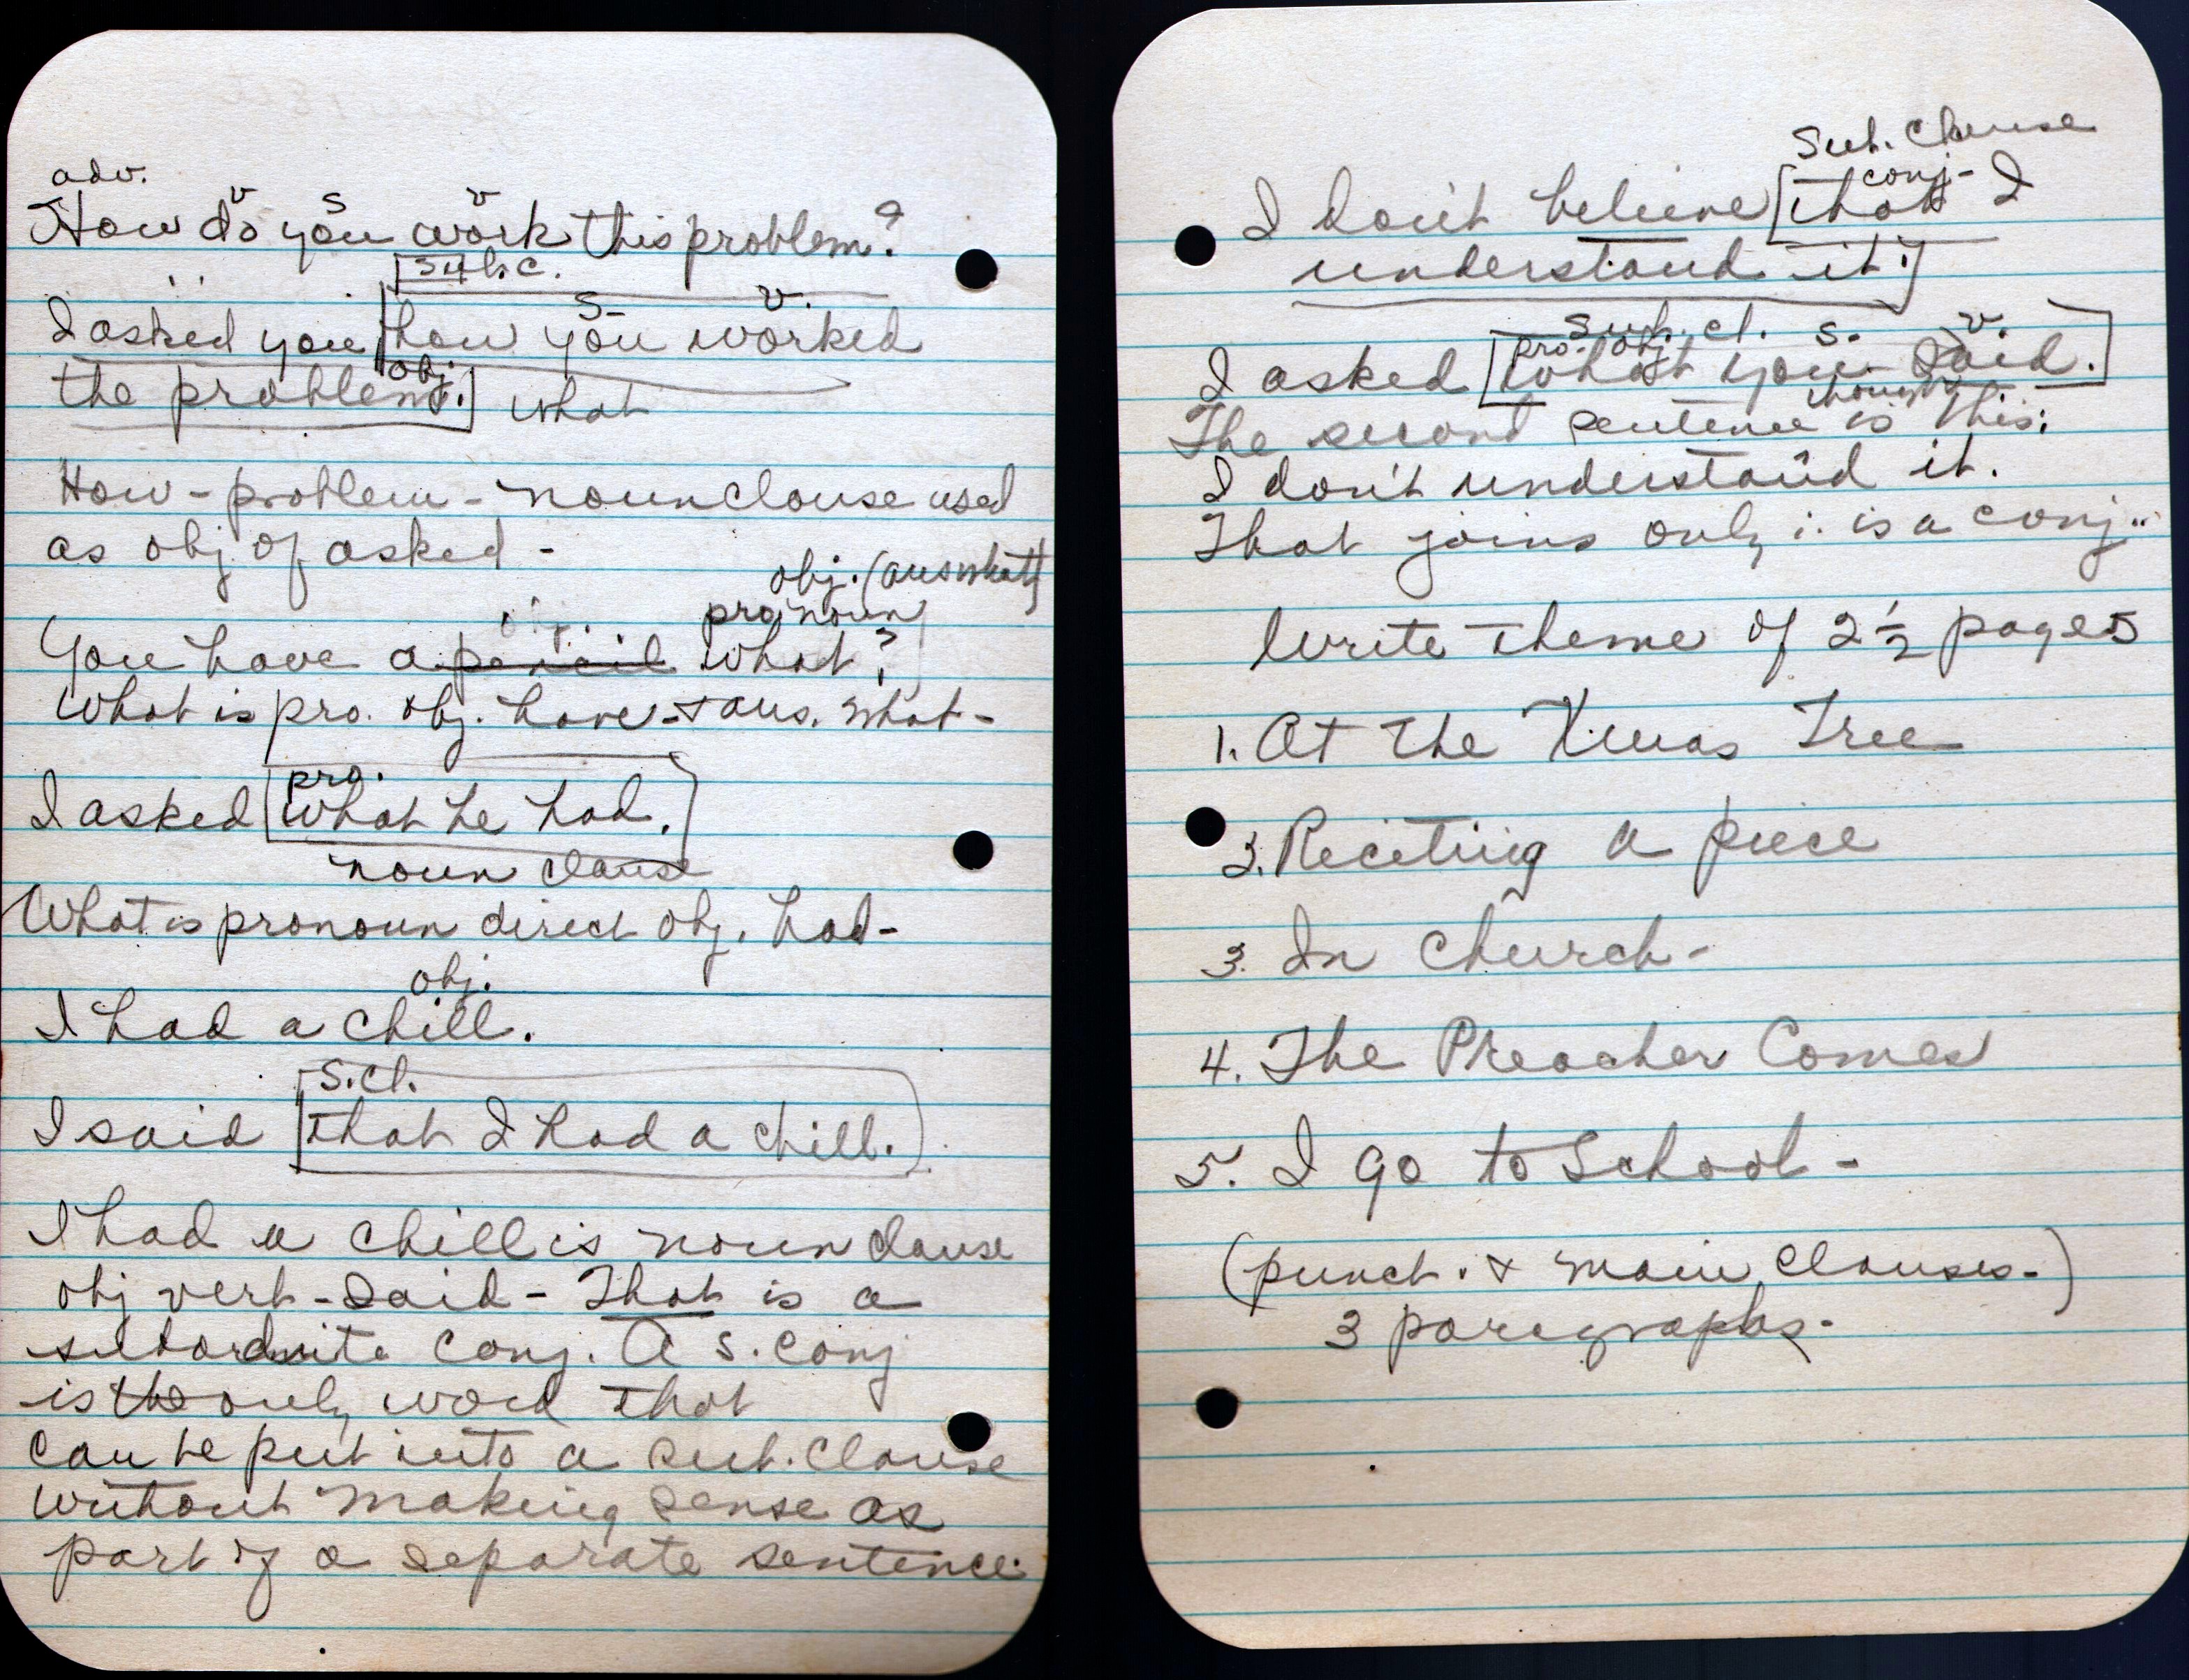 adv.
v s v
How do you work this problem?
sub. c.
s. v.
I asked you [how you worked
obj.
the problem.] what
How - problem - noun clause used
as obj of asked -
obj. (ans what)
pronoun
You have a pencil what?
What is pro. obj. have - + ans. what -
pro.
I asked [what he had.]
noun clause
What is pronoun direct obj. had -
obj.
I had a chill.
s. cl.
I said [that I had a chill.]
I had a chill is noun clause
obj verb - said - That is a
subordnite conj. A s. conj
is the only word that
can be put into a sub. clause
without making sense as
part of a separate sentence.
Sub. Clause
conj -
I don't believe [that I
understand it.]
sub. cl. s. v.
pro. obj.
I asked [what you said.]
thought
The second sentence is this:
I don't understand it.
That joins only ∴ is a conj.
Write theme of 2 1/2 pages
1. At the Xmas Tree
2. Reciting a piece
3. In Church -
4. The Preacher Comes
5. I go to School -
(punct. + main clauses -)
3 paregraphs -